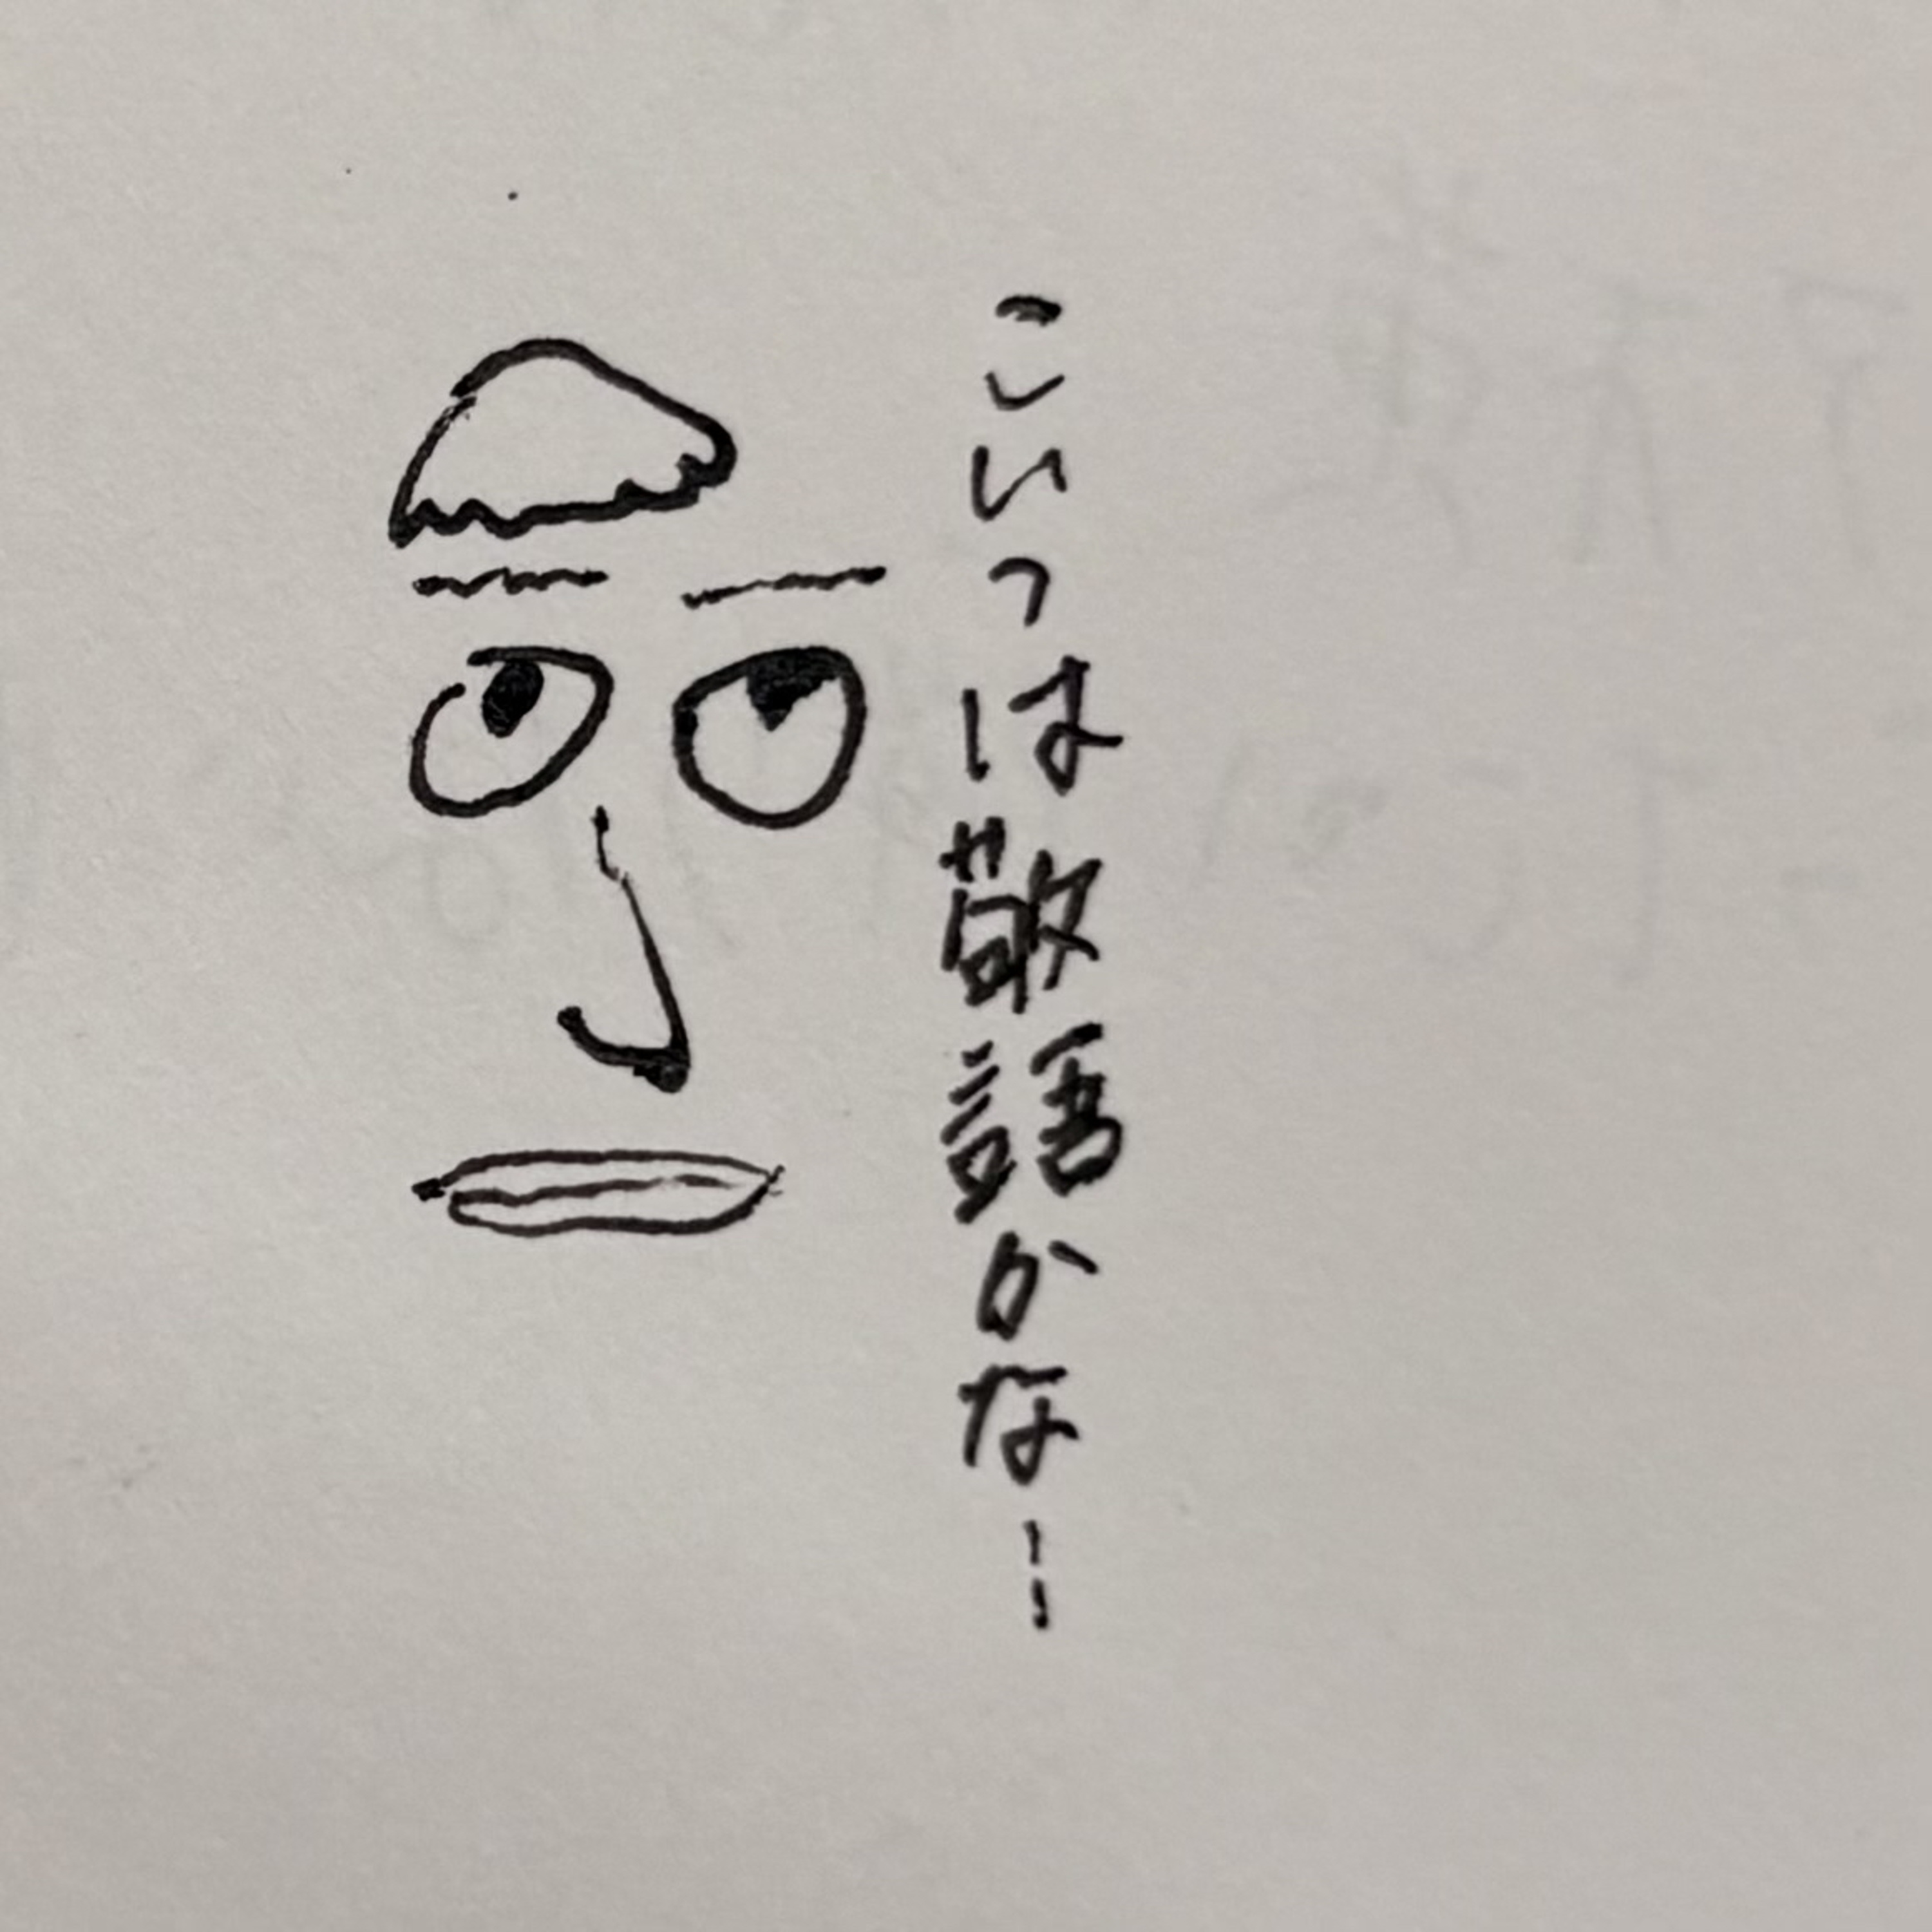 こいつは敬語かな…